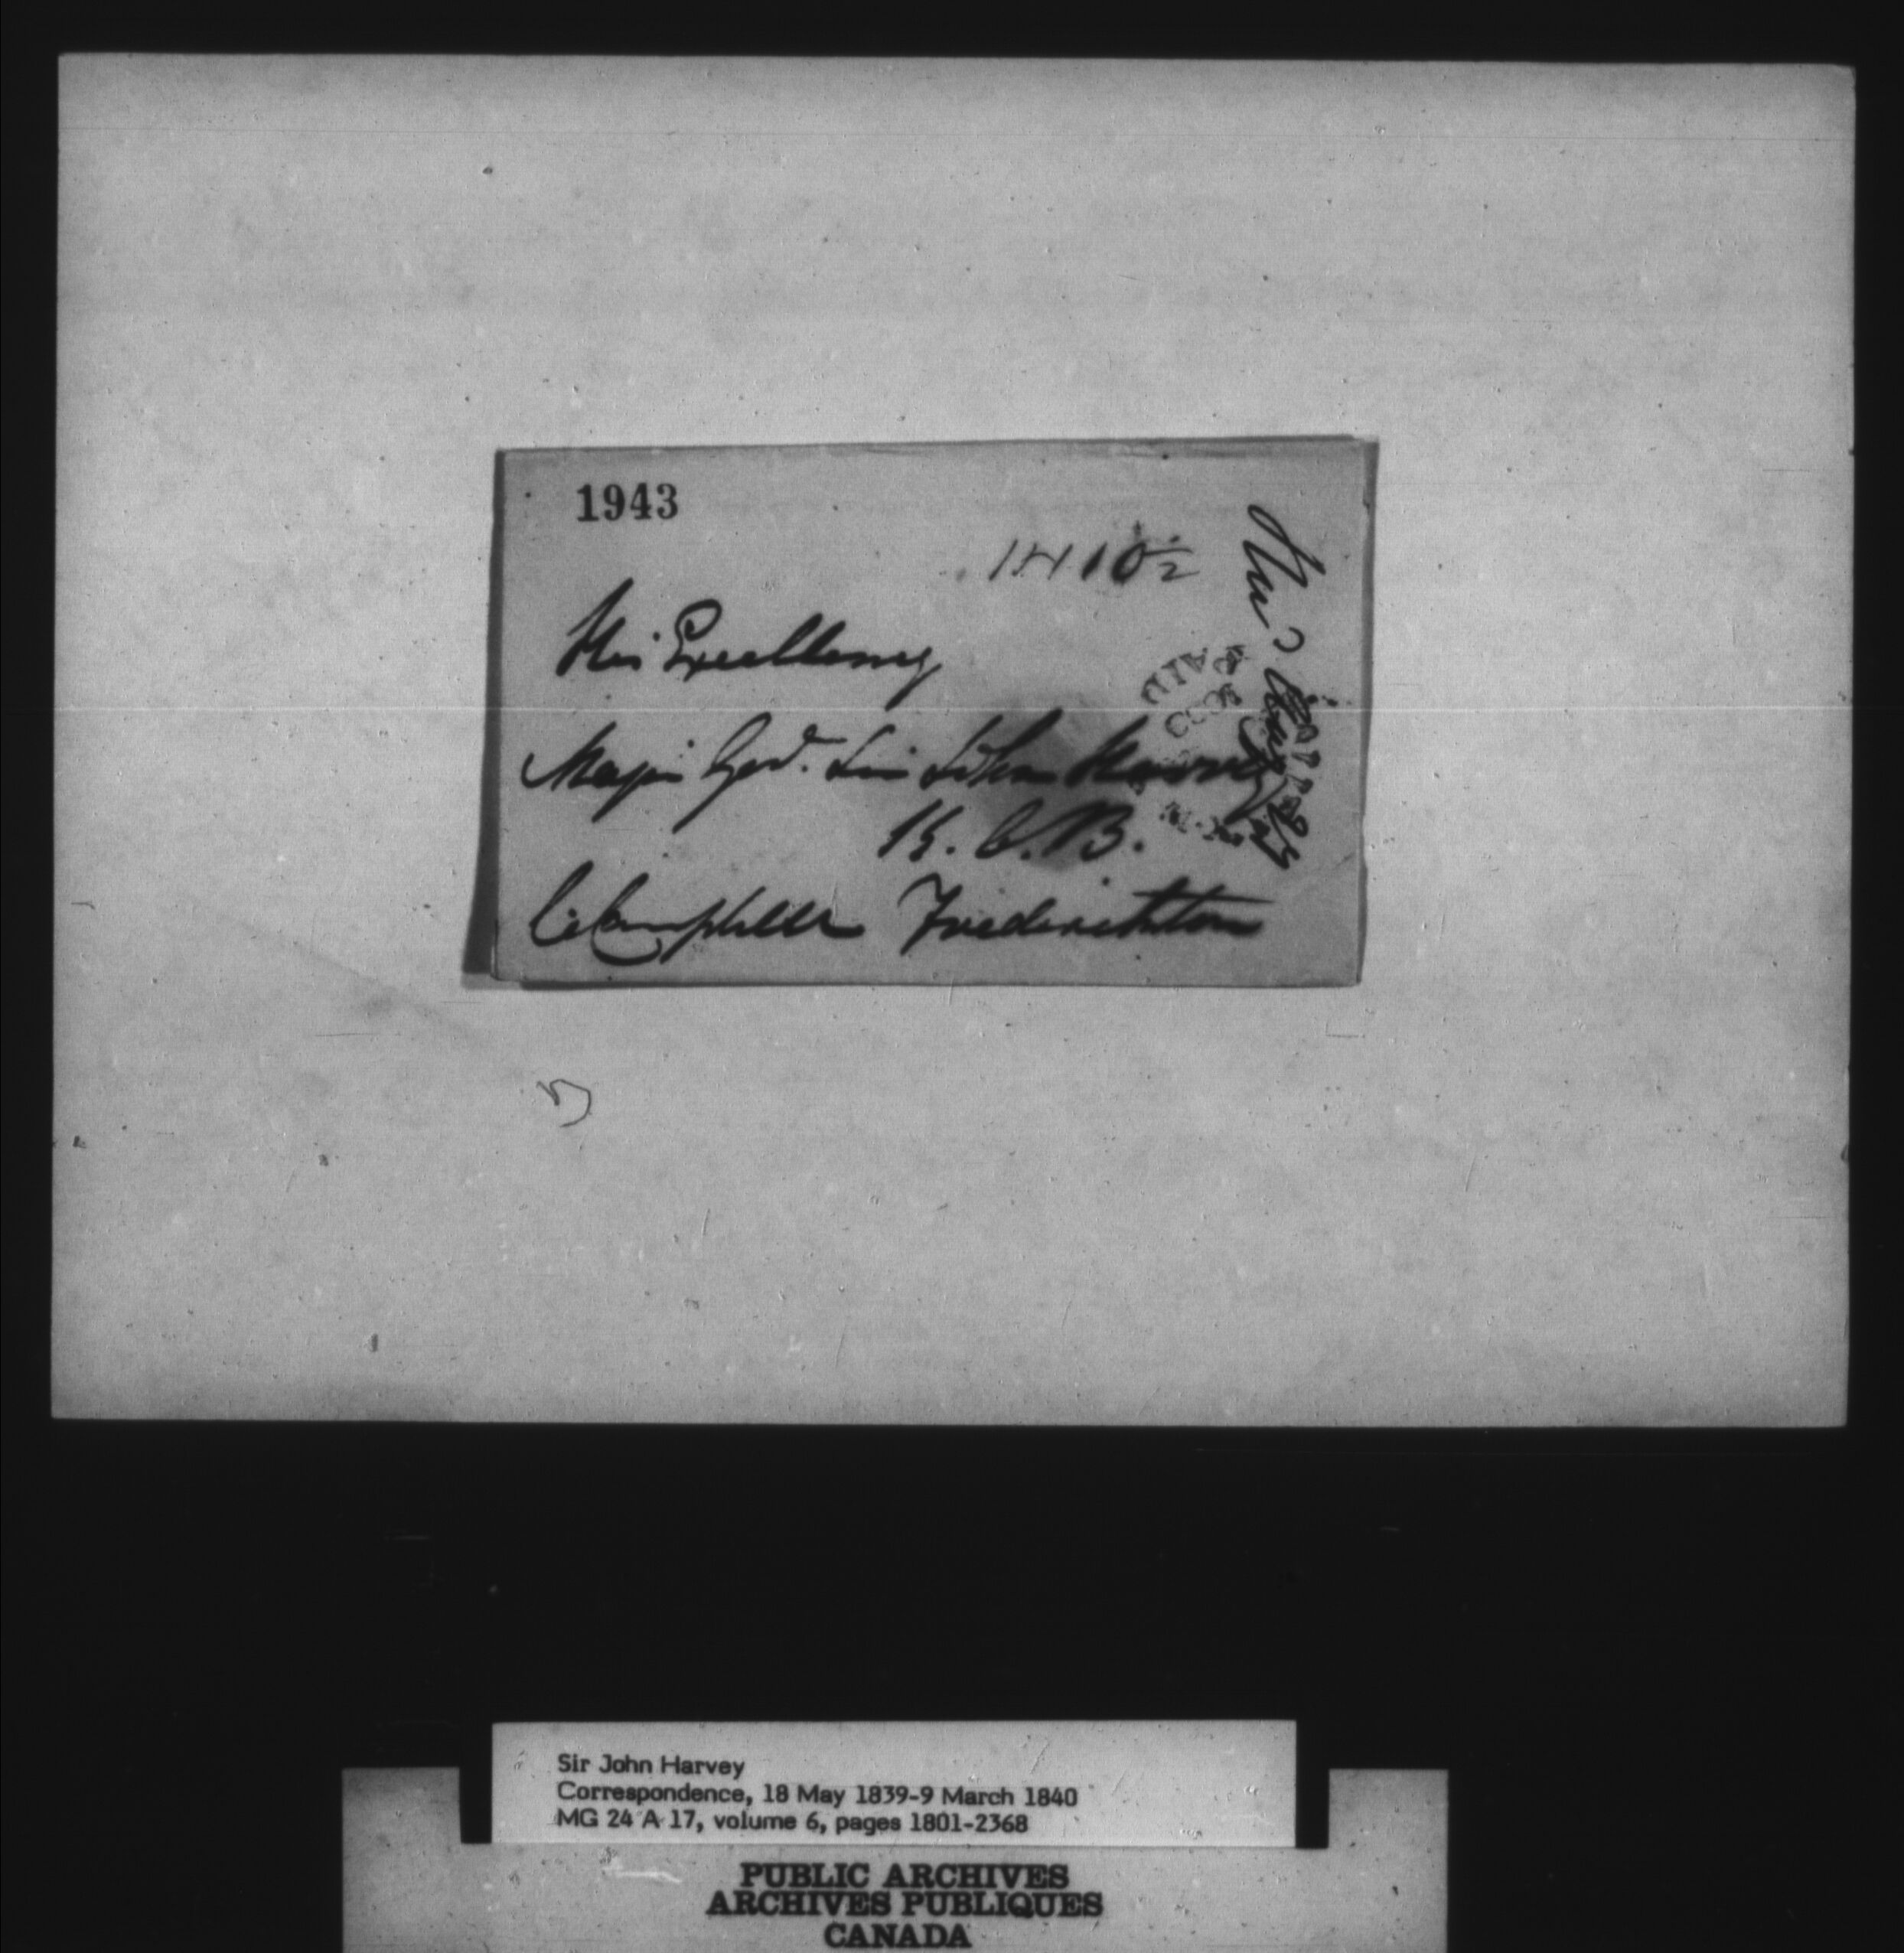 1943
His Excellency
Major Genl. Sir John Harvey
K. C. B.
C Campbell Fredericton
PAID
Sir John Harvey
Correspondence, 18 May 1839-9 March 1840
MG 24 A 17, volume 6, pages 1801-2368
PUBLIC ARCHIVES
ARCHIVES PUBLIQUES
CANADA